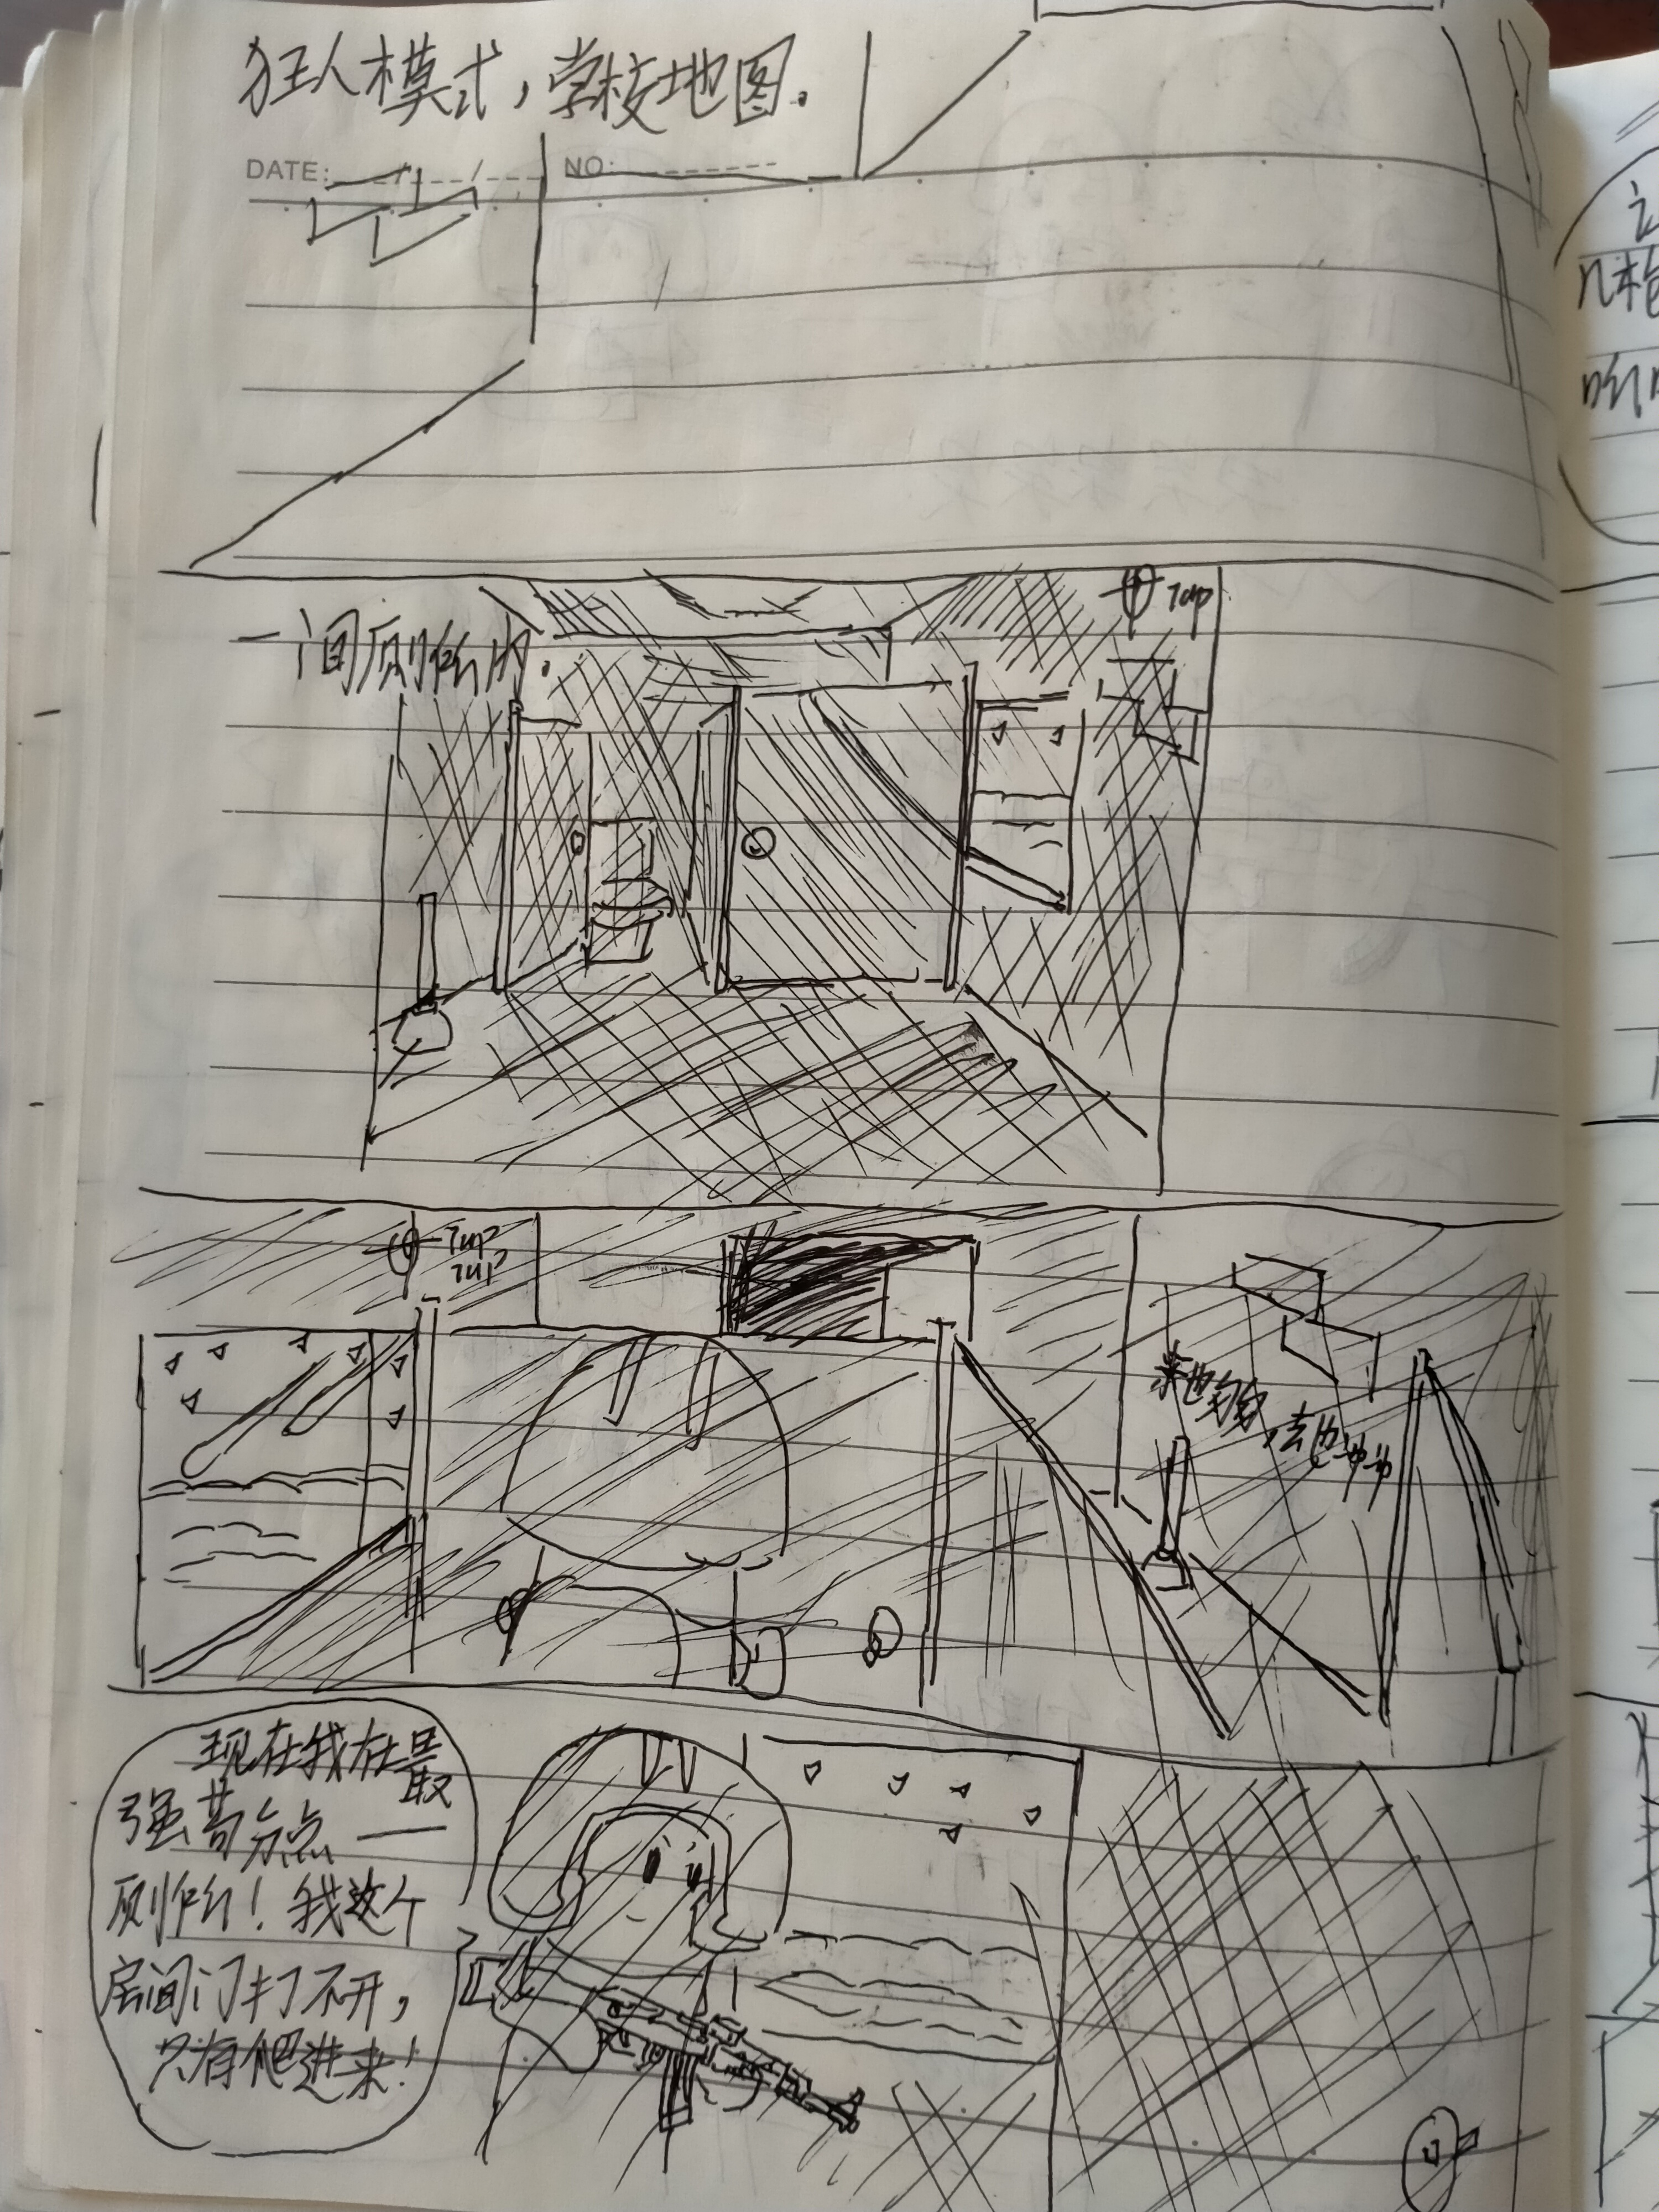 狂人模式，学校地图.
DATE: / / NO:
一间厕所内.
7up
7up
7up
来也匆匆,去也冲冲
现在我在最
强苟分点——
厕所！我这个
房间门打不开，
只有爬进来！